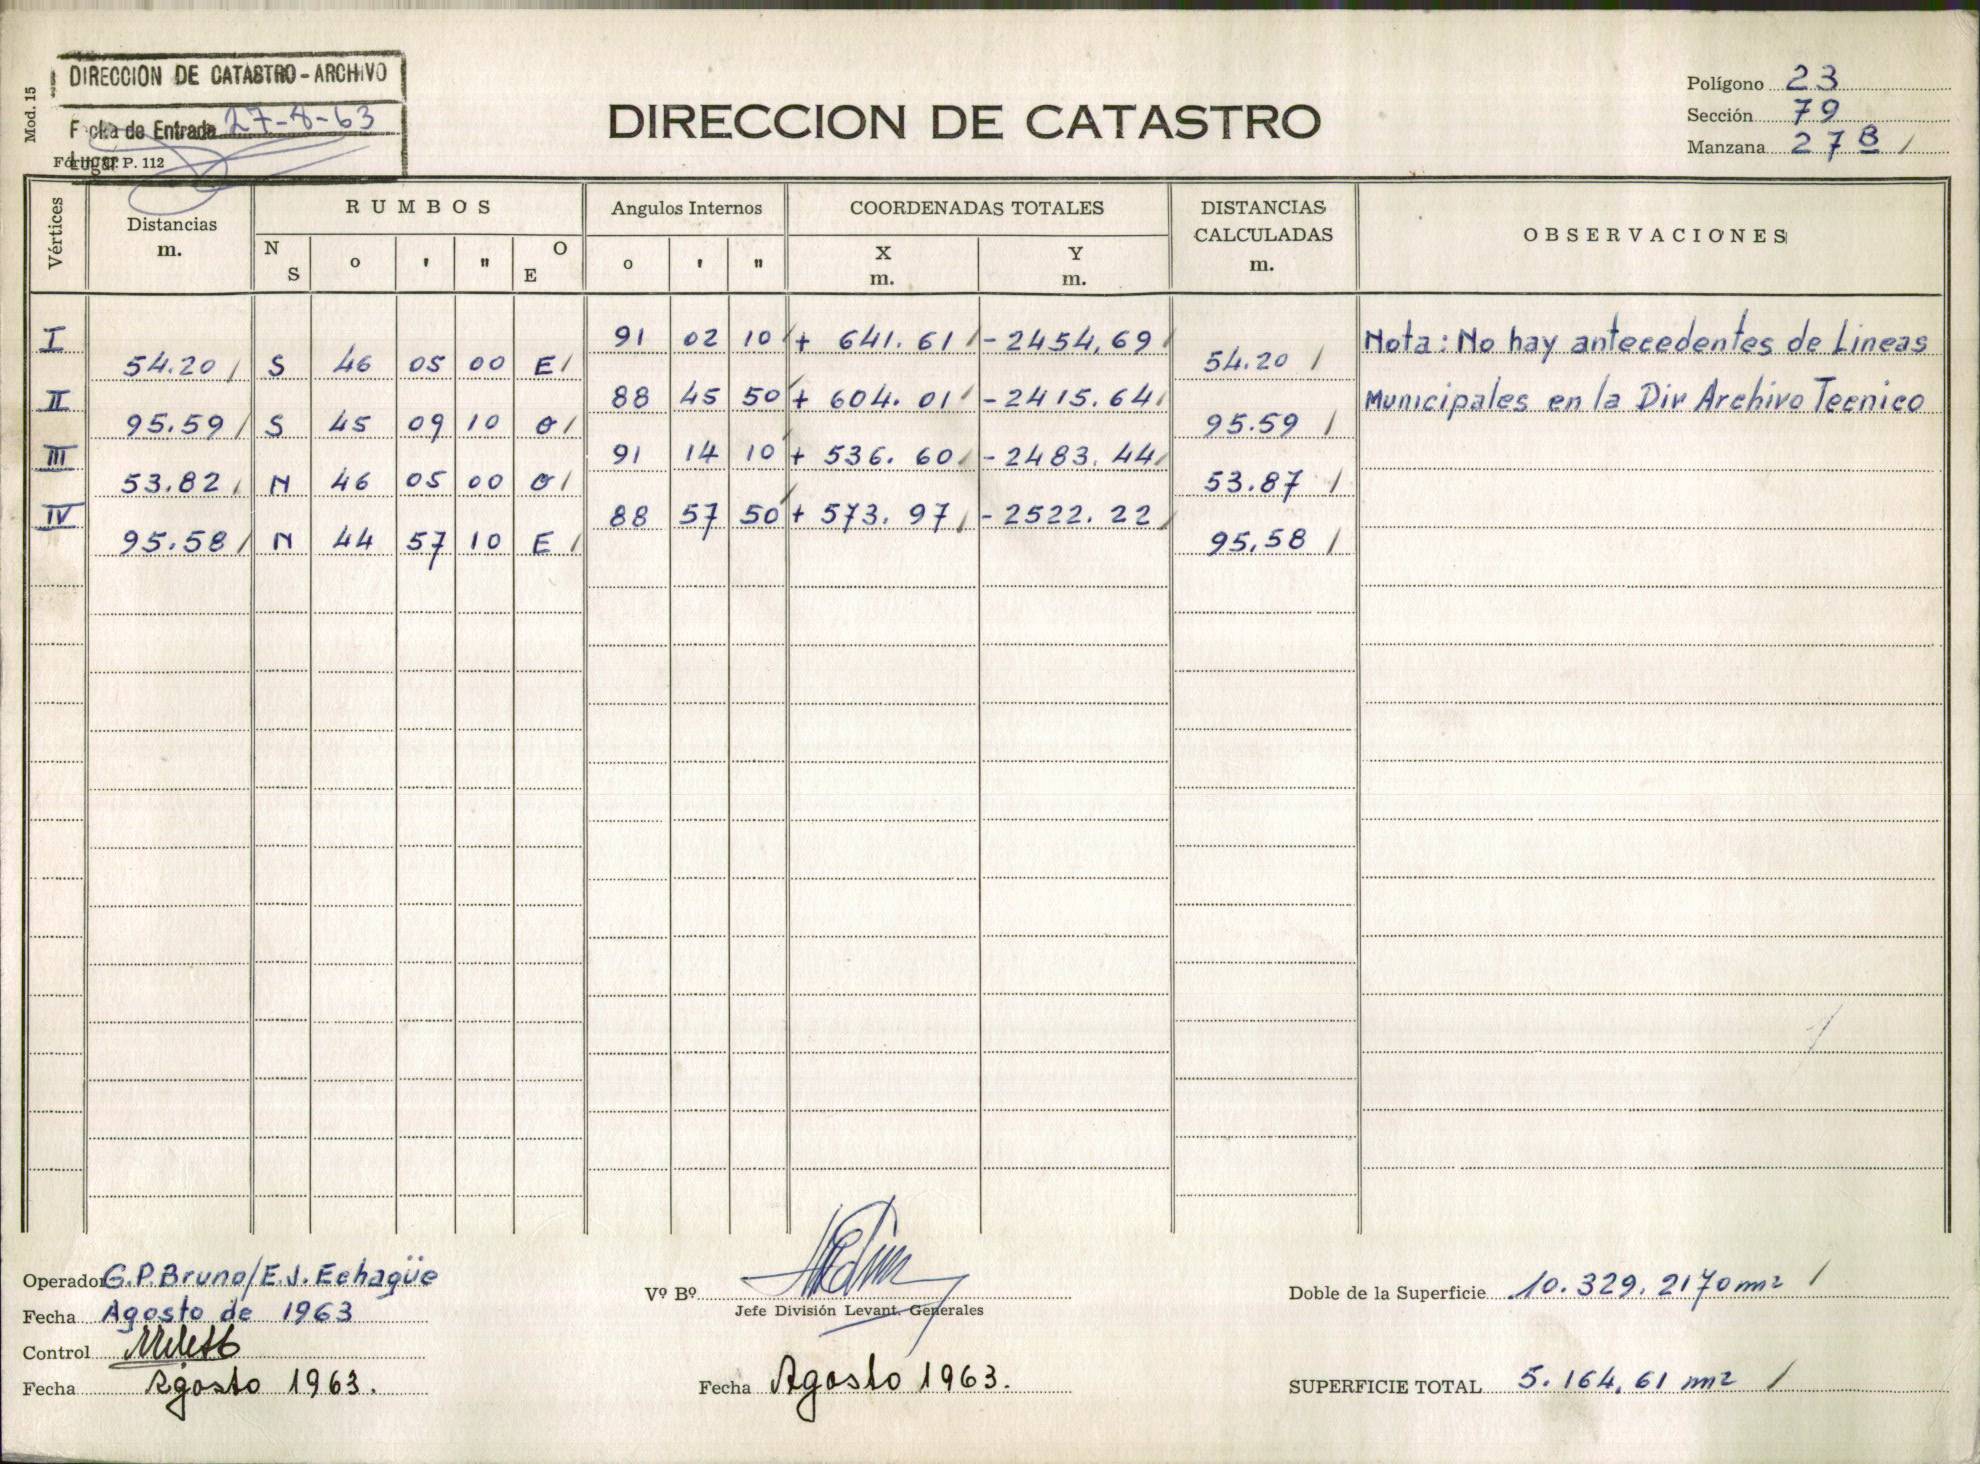 Mod. 15
DIRECCION DE CATASTRO - ARCHIVO
Fecha de Entrada 27-8-63
Lugar
P. 112
DIRECCION DE CATASTRO
Polígono 23
Sección 79
Manzana 27B
Vértices
Distancias
m.
RUMBOS
N
S
o ' "
O
E
Angulos Internos
o ' "
COORDENADAS TOTALES
X
m.
Y
m.
DISTANCIAS
CALCULADAS
m.
OBSERVACIONES
I 91 02 10 + 641.61 - 2454,69
54.20 S 46 05 00 E 54.20
II 88 45 50 + 604.01 - 2415.64
95.59 S 45 09 10 O 95.59
III 91 14 10 + 536.60 - 2483.44
53.82 N 46 05 00 O 53.87
IV 88 57 50 + 573.97 - 2522.22
95.58 N 44 57 10 E 95,58
Nota: No hay antecedentes de Lineas
Municipales en la Dir Archivo Tecnico
Operador G.P.Bruno/E.J.Echagüe
Fecha Agosto de 1963
Control
Fecha Agosto 1963.
Vº Bº
Jefe División Levant. Generales
Fecha Agosto 1963.
Doble de la Superficie 10.329,2170 m2
SUPERFICIE TOTAL 5.164,61 m2